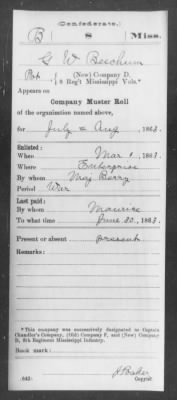 (Confederate.)
B 8 Miss.
G W Beechum
Pvt, { (New) Company D,
8 Reg't Mississippi Vols.*
Appears on
Company Muster Roll
of the organization named above,
for July & Aug, 1863.
Enlisted:
When Mar 1, 1863.
Where Enterprise
By whom Maj Berry
Period War
Last paid:
By whom Maurice
To what time June 30, 1863.
Present or absent present
Remarks:
*This company was successively designated as Captain
Chandler's Company, (Old) Company F, and (New) Company
D, 8th Regiment Mississippi Infantry.
Book mark:
(642) Copyist.